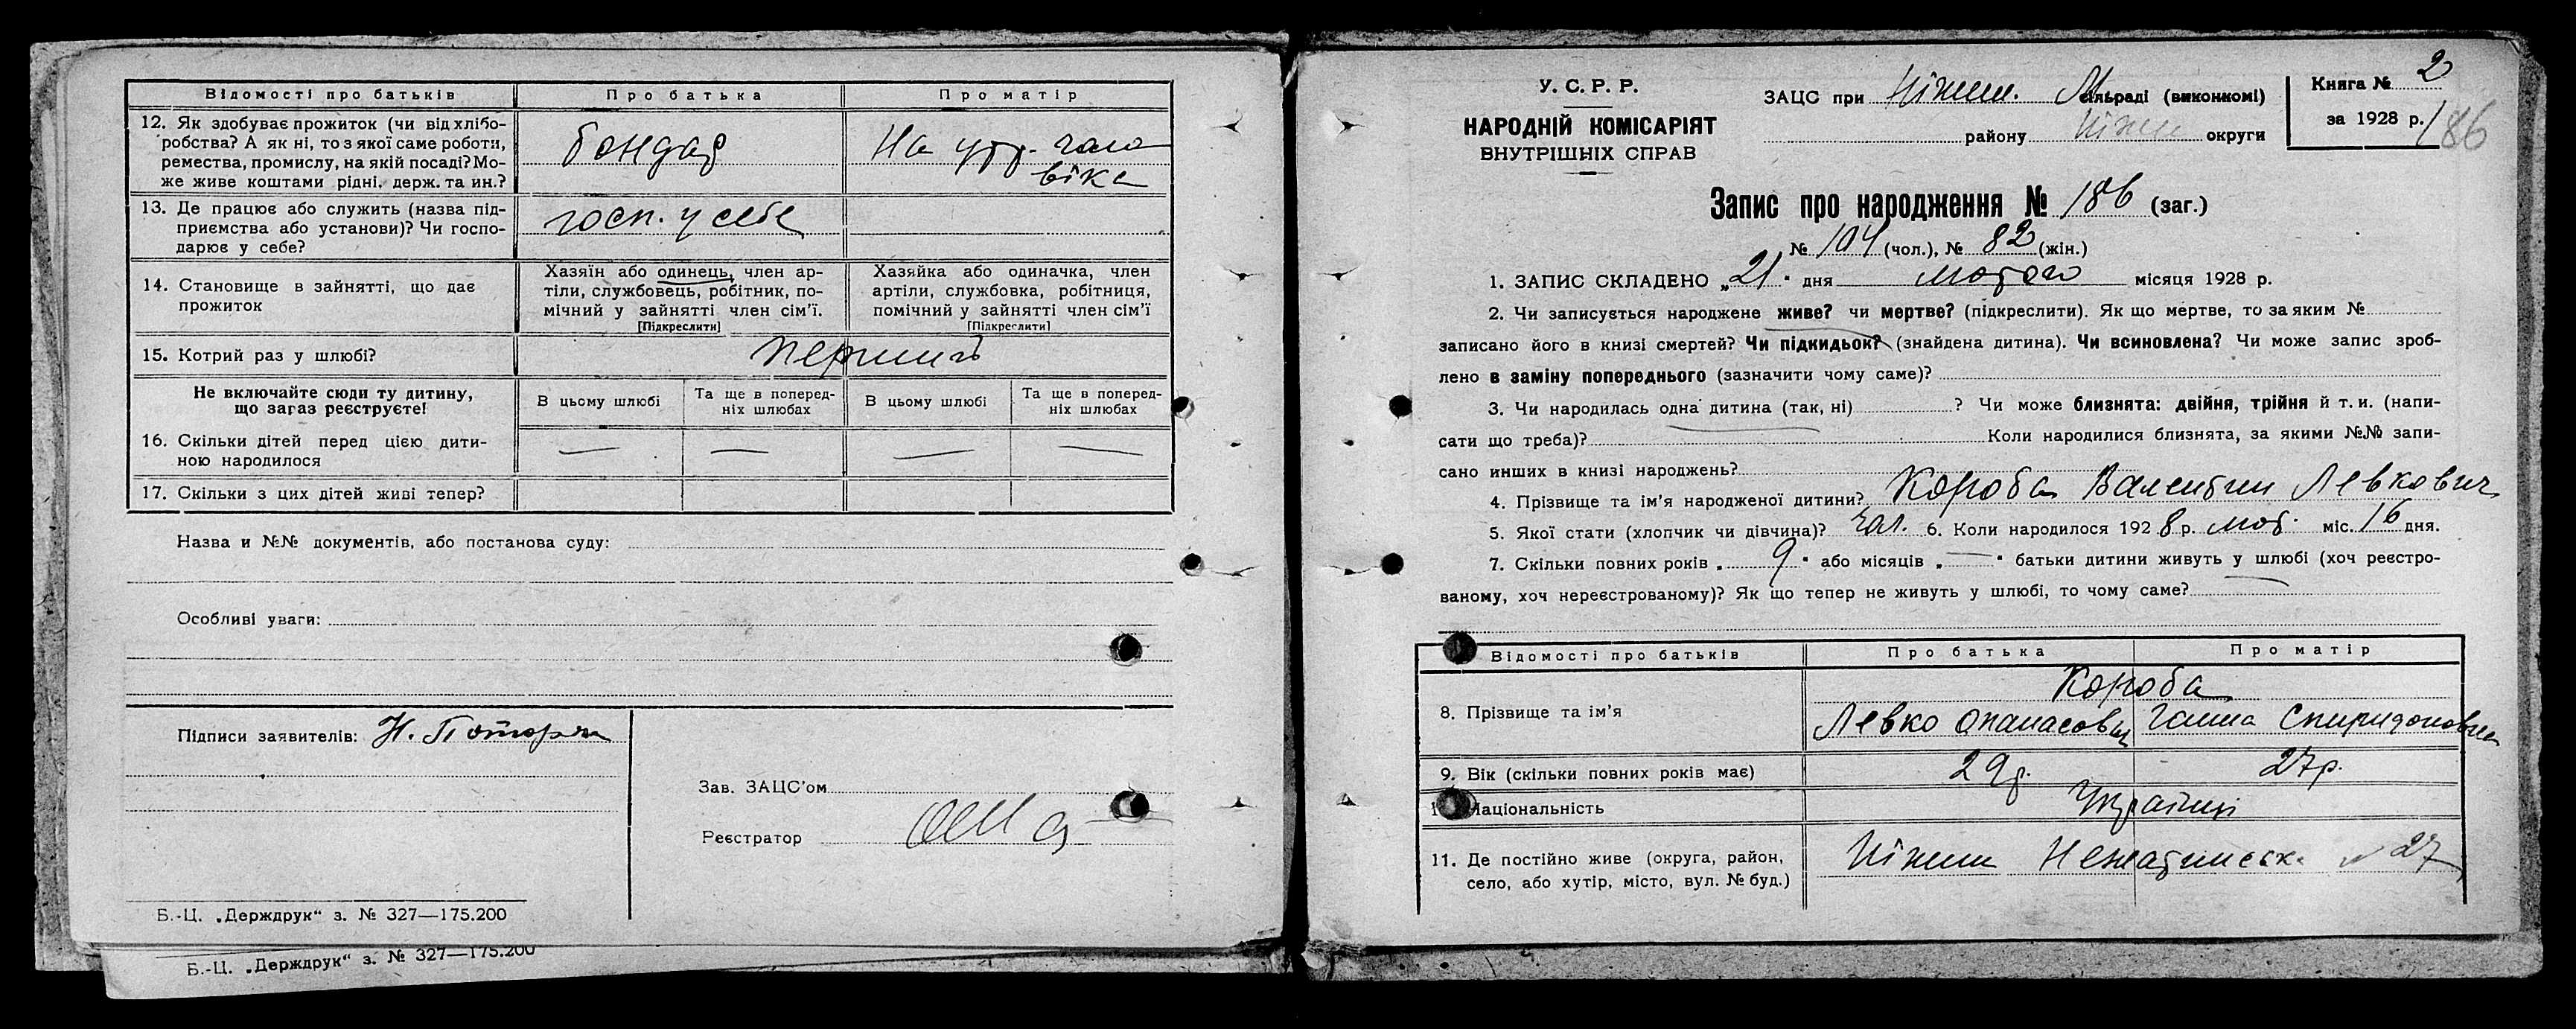 Відомості про батьків Про батька Про матір
12. Як здобуває прожиток (чи від хлібо-
робства? А як ні, то з якої саме роботи,
ремества, промислу, на якій посаді? Мо-
же живе коштами рідні, держ. та ин.?
бондар
На утр. чоло
віка
13. Де працює або служить (назва під-
приємства або установи)? Чи госпо-
дарює у себе?
госп. у себе
14. Становище в зайнятті, що дає
прожиток
Хазяїн або одинець, член ар-
тіли, службовець, робітник, по-
мічний у зайнятті член сім'ї.
[Підкреслити]
Хазяйка або одиначка, член
артіли, службовка, робітниця,
помічний у зайнятті член сім'ї
[Підкреслити]
15. Котрий раз у шлюбі?
Не включайте сюди ту дитину,
що зараз реєструєте!
В цьому шлюбі
Та ще в поперед-
ніх шлюбах
В цьому шлюбі
Та ще в поперед-
ніх шлюбах
16. Скільки дітей перед цією дити-
ною народилося
— — — —
17. Скільки з цих дітей живі тепер?
Назва и №№ документів, або постанова суду:
Особливі уваги:
Підписи заявителів: Н.
Зав. ЗАЦС'ом
Реєстратор
Б.-Ц. „Держдрук“ з. № 327—175.200
Б.-Ц. „Держдрук“ з. № 327—175.200
У. С. Р. Р.
НАРОДНІЙ КОМІСАРІЯТ
ВНУТРІШНІХ СПРАВ
ЗАЦС при Ніжин. М сільраді (виконкомі)
району Ніжин округи
Книга № 2
за 1928 р.
186
Запис про народження № 186 (заг.)
№ 104 (чол.), № 82 (жін.)
1. ЗАПИС СКЛАДЕНО „21“ дня лютого місяця 1928 р.
2. Чи записується народжене живе? чи мертве? (підкреслити). Як що мертве, то за яким №
записано його в книзі смертей? Чи підкидьок? (знайдена дитина). Чи всиновлена? Чи може запис зроб-
лено в заміну попереднього (зазначити чому саме)?
3. Чи народилась одна дитина (так, ні) ? Чи може близнята: двійня, трійня й т. и. (напи-
сати що треба)? Коли народилися близнята, за якими №№ запи-
сано инших в книзі народжень?
4. Прізвище та ім'я народженої дитини? Короба Валентин Левкович
5. Якої стати (хлопчик чи дівчина)? чол. 6. Коли народилося 1928 р. лют. міс. 16 дня.
7. Скільки повних років „ 9 “ або місяців „ — “ батьки дитини живуть у шлюбі (хоч реєстро-
ваному, хоч нереєстрованому)? Як що тепер не живуть у шлюбі, то чому саме?
Відомості про батьків Про батька Про матір
8. Прізвище та ім'я
Короба
Левко Опанасович Ганна Спиридоновна
9. Вік (скільки повних років має) 29 р. 27 р.
Національність Українці
11. Де постійно живе (округа, район,
село, або хутір, місто, вул. № буд.)
Ніжин 27